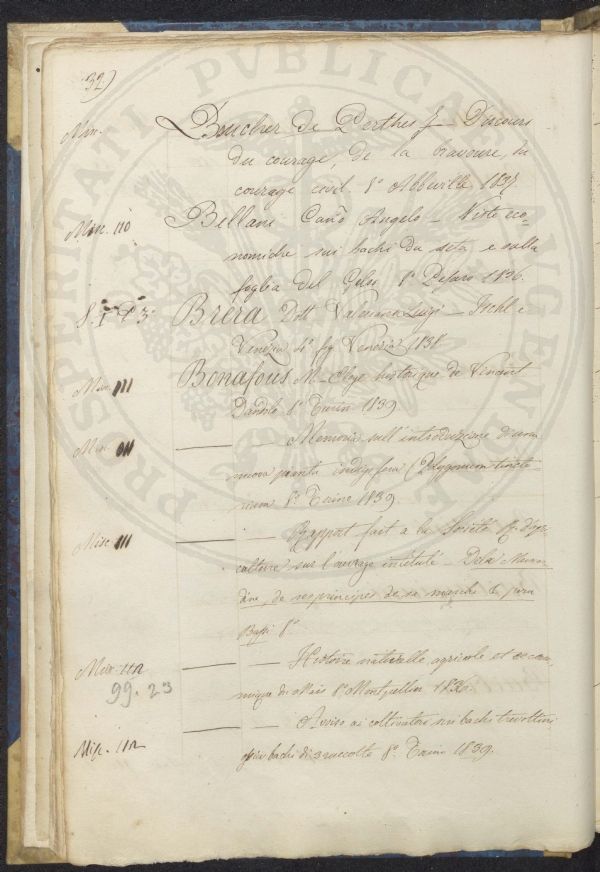 32)
Misc. Boucher de Perthes J. Discours
du courage, de la bravoure, du
courage civil. 8° Abbeville 1837
Misc. 110 Bellani Can.o Angelo — Note eco-
nomiche sui bachi da seta, e sulla
foglia del Gelso 8° Pesaro 1836.
Brera Dott Valeriano Luigi — Ischl e
Venezia 4° fig Venezia 1838
Misc. 111 Bonafous M — Eloge historique de Vincent
Dandolo 8° Turin 1839
Misc. 111 — — Memoria sull'introduzione d'una
nuova pianta indigofera (Polygonum tincto-
rium 8° Torino 1839
Misc 111 — — Rapport fait a la Société R. d'agri-
culture sur l'ouvrage intitulé — Della
de ses principes de sa marche &
Bassi 8°
Misc. 112 — — Histoire naturelle agricole et econo-
mique du Mais 8° Montpellier 1836.
99. 23
Misc. 112 — — Avviso ai coltivatori sui bachi trevoltini
ossia bachi di 3 raccolte 8° Torino 1839.
PROSPERITATI PVBLICAE AVGENDAE